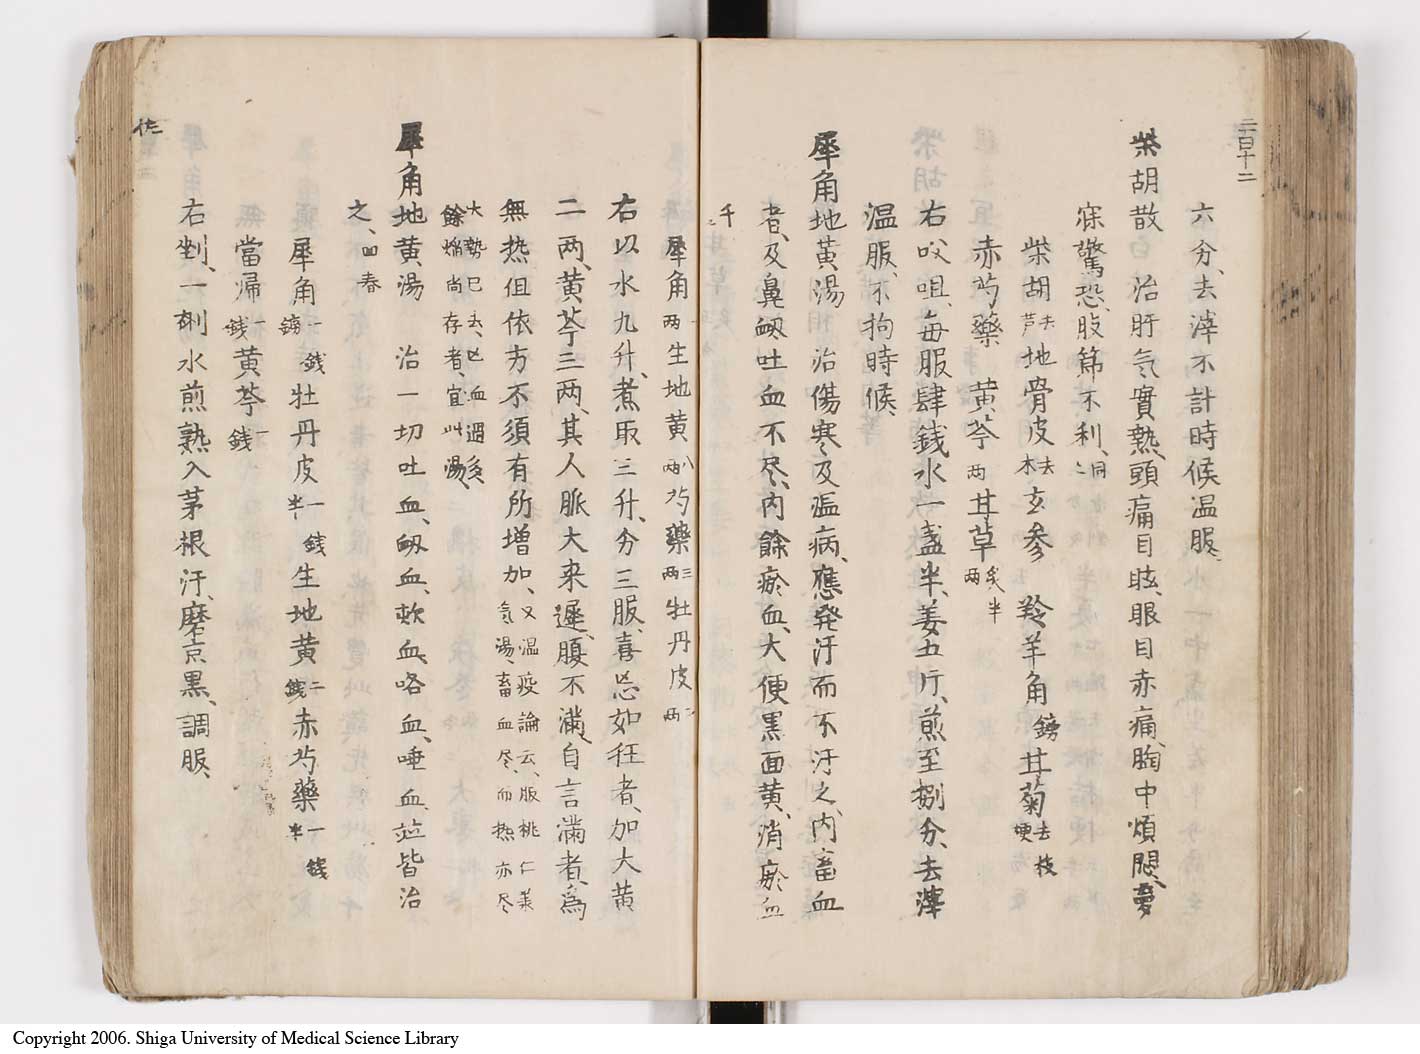 二百十二
六分、去滓不計時候温服、
柴胡散 治肝気實熱、頭痛目眩、眼目赤痛、胸中煩悶、夢
寐驚恐、肢節不利、同
柴胡去芦地骨皮去木玄参 羚羊角鎊甘菊去枝梗
赤芍藥 黄芩両甘草炙半両
右㕮咀、毎服肆銭水一盞半、姜五片、煎至捌分、去滓
温服、不拘時候、
犀角地黄湯 治傷寒及温病、應発汗而不汗之、内畜血
者、及鼻衂吐血不尽、内餘瘀血、大便黒面黄、消瘀血
千
犀角一両生地黄八両芍藥三両牡丹皮二両
右以水九升、煮取三升、分三服、喜忘如狂者、加大黄
二両、黄芩三両、其人脈大来遲、腹不滿、自言滿者、爲
無热但依方不須有所増加、又温疫論云、服桃仁承気湯、畜血尽、而热亦尽
大勢已去、亡血過多餘焔尚存者、宜此湯、
犀角地黄湯 治一切吐血、衂血、欬血、咯血、唾血、並皆治
之、回春
犀角鎊一銭牡丹皮一銭半生地黄二銭赤芍藥一銭半
當帰一銭黄芩一銭
右剉、一剤水煎熟入茅根汁、磨京黒、調服、